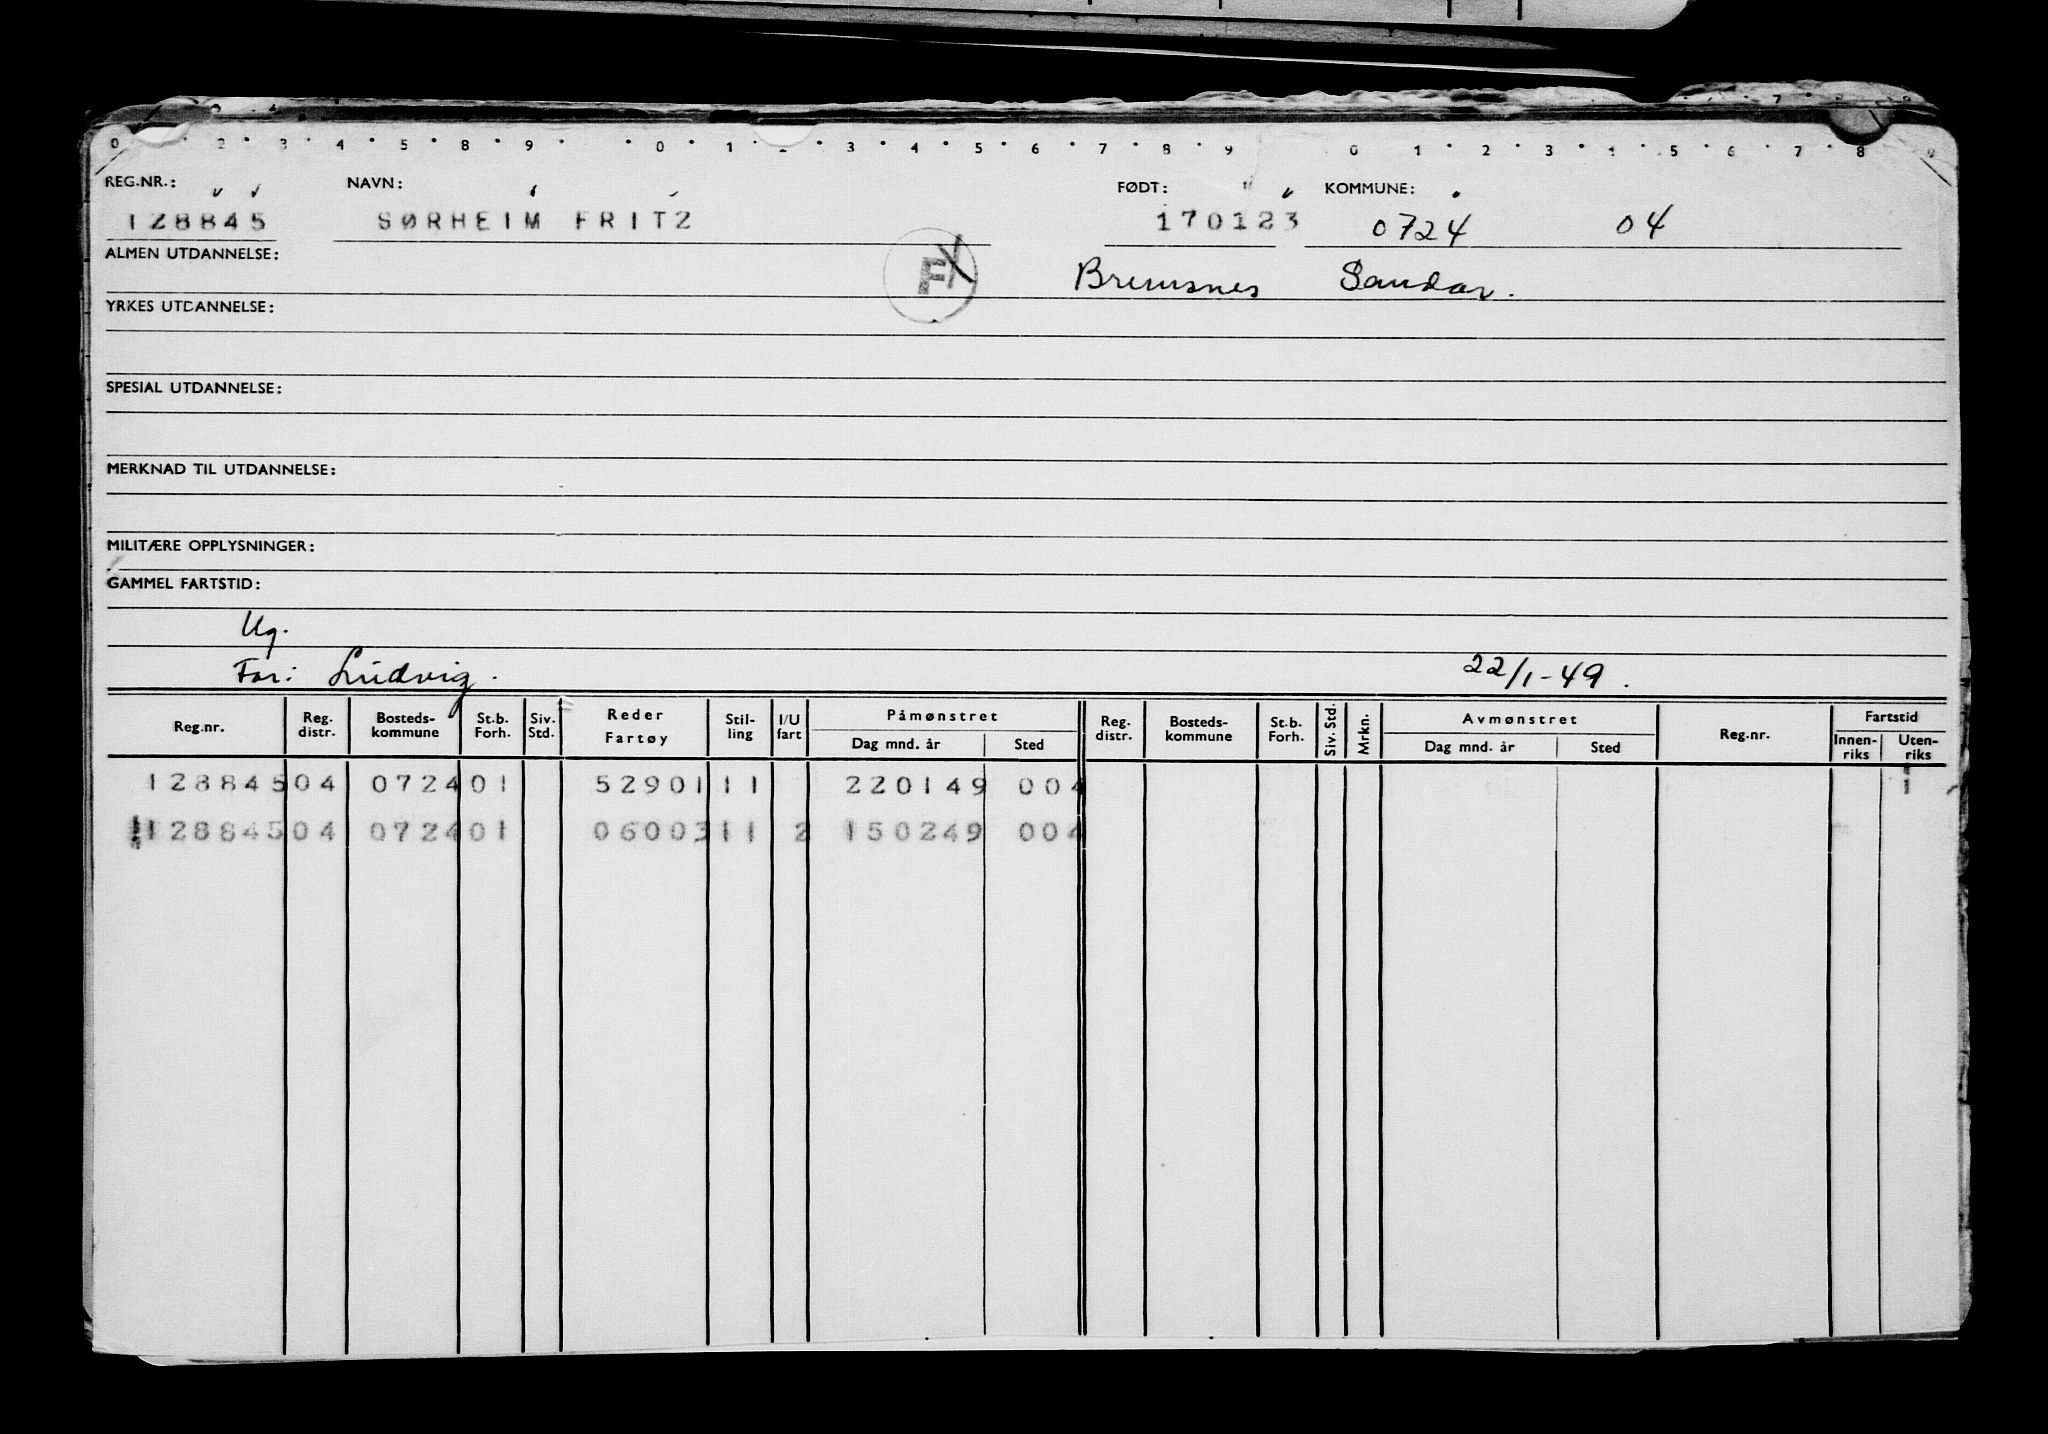 0 · 2 · 3 · 4 · 5 · 8 · 9 · · 0 · 1 · 2 · 3 · 4 · 5 · 6 · 7 · 8 · 9 0 · 1 · 2 · 3 · 4 · 5 · 6 · 7 · 8 9
REG.NR.: NAVN: FØDT: KOMMUNE:
128845 SØRHEIM FRITZ 170123 0724 04
ALMEN UTDANNELSE: F Bremsnes Sandar.
YRKES UTDANNELSE:
SPESIAL UTDANNELSE:
MERKNAD TIL UTDANNELSE:
MILITÆRE OPPLYSNINGER:
GAMMEL FARTSTID:
Ug.
Far: Ludvig. 22/1-49.
Reg.nr. Reg. distr. Bosteds- kommune St.b. Forh. Siv. Std. Reder Fartøy Stil- ling I/U fart Påmønstret Dag mnd. år Sted Reg. distr. Bosteds- kommune St.b. Forh. Siv. Std. Mrkn. Avmønstret Dag mnd. år Sted Reg.nr. Fartstid Innen- riks Uten- riks
128845 04 0724 01 52901 11 220149 004 1
128845 04 0724 01 06003 11 2 150249 004